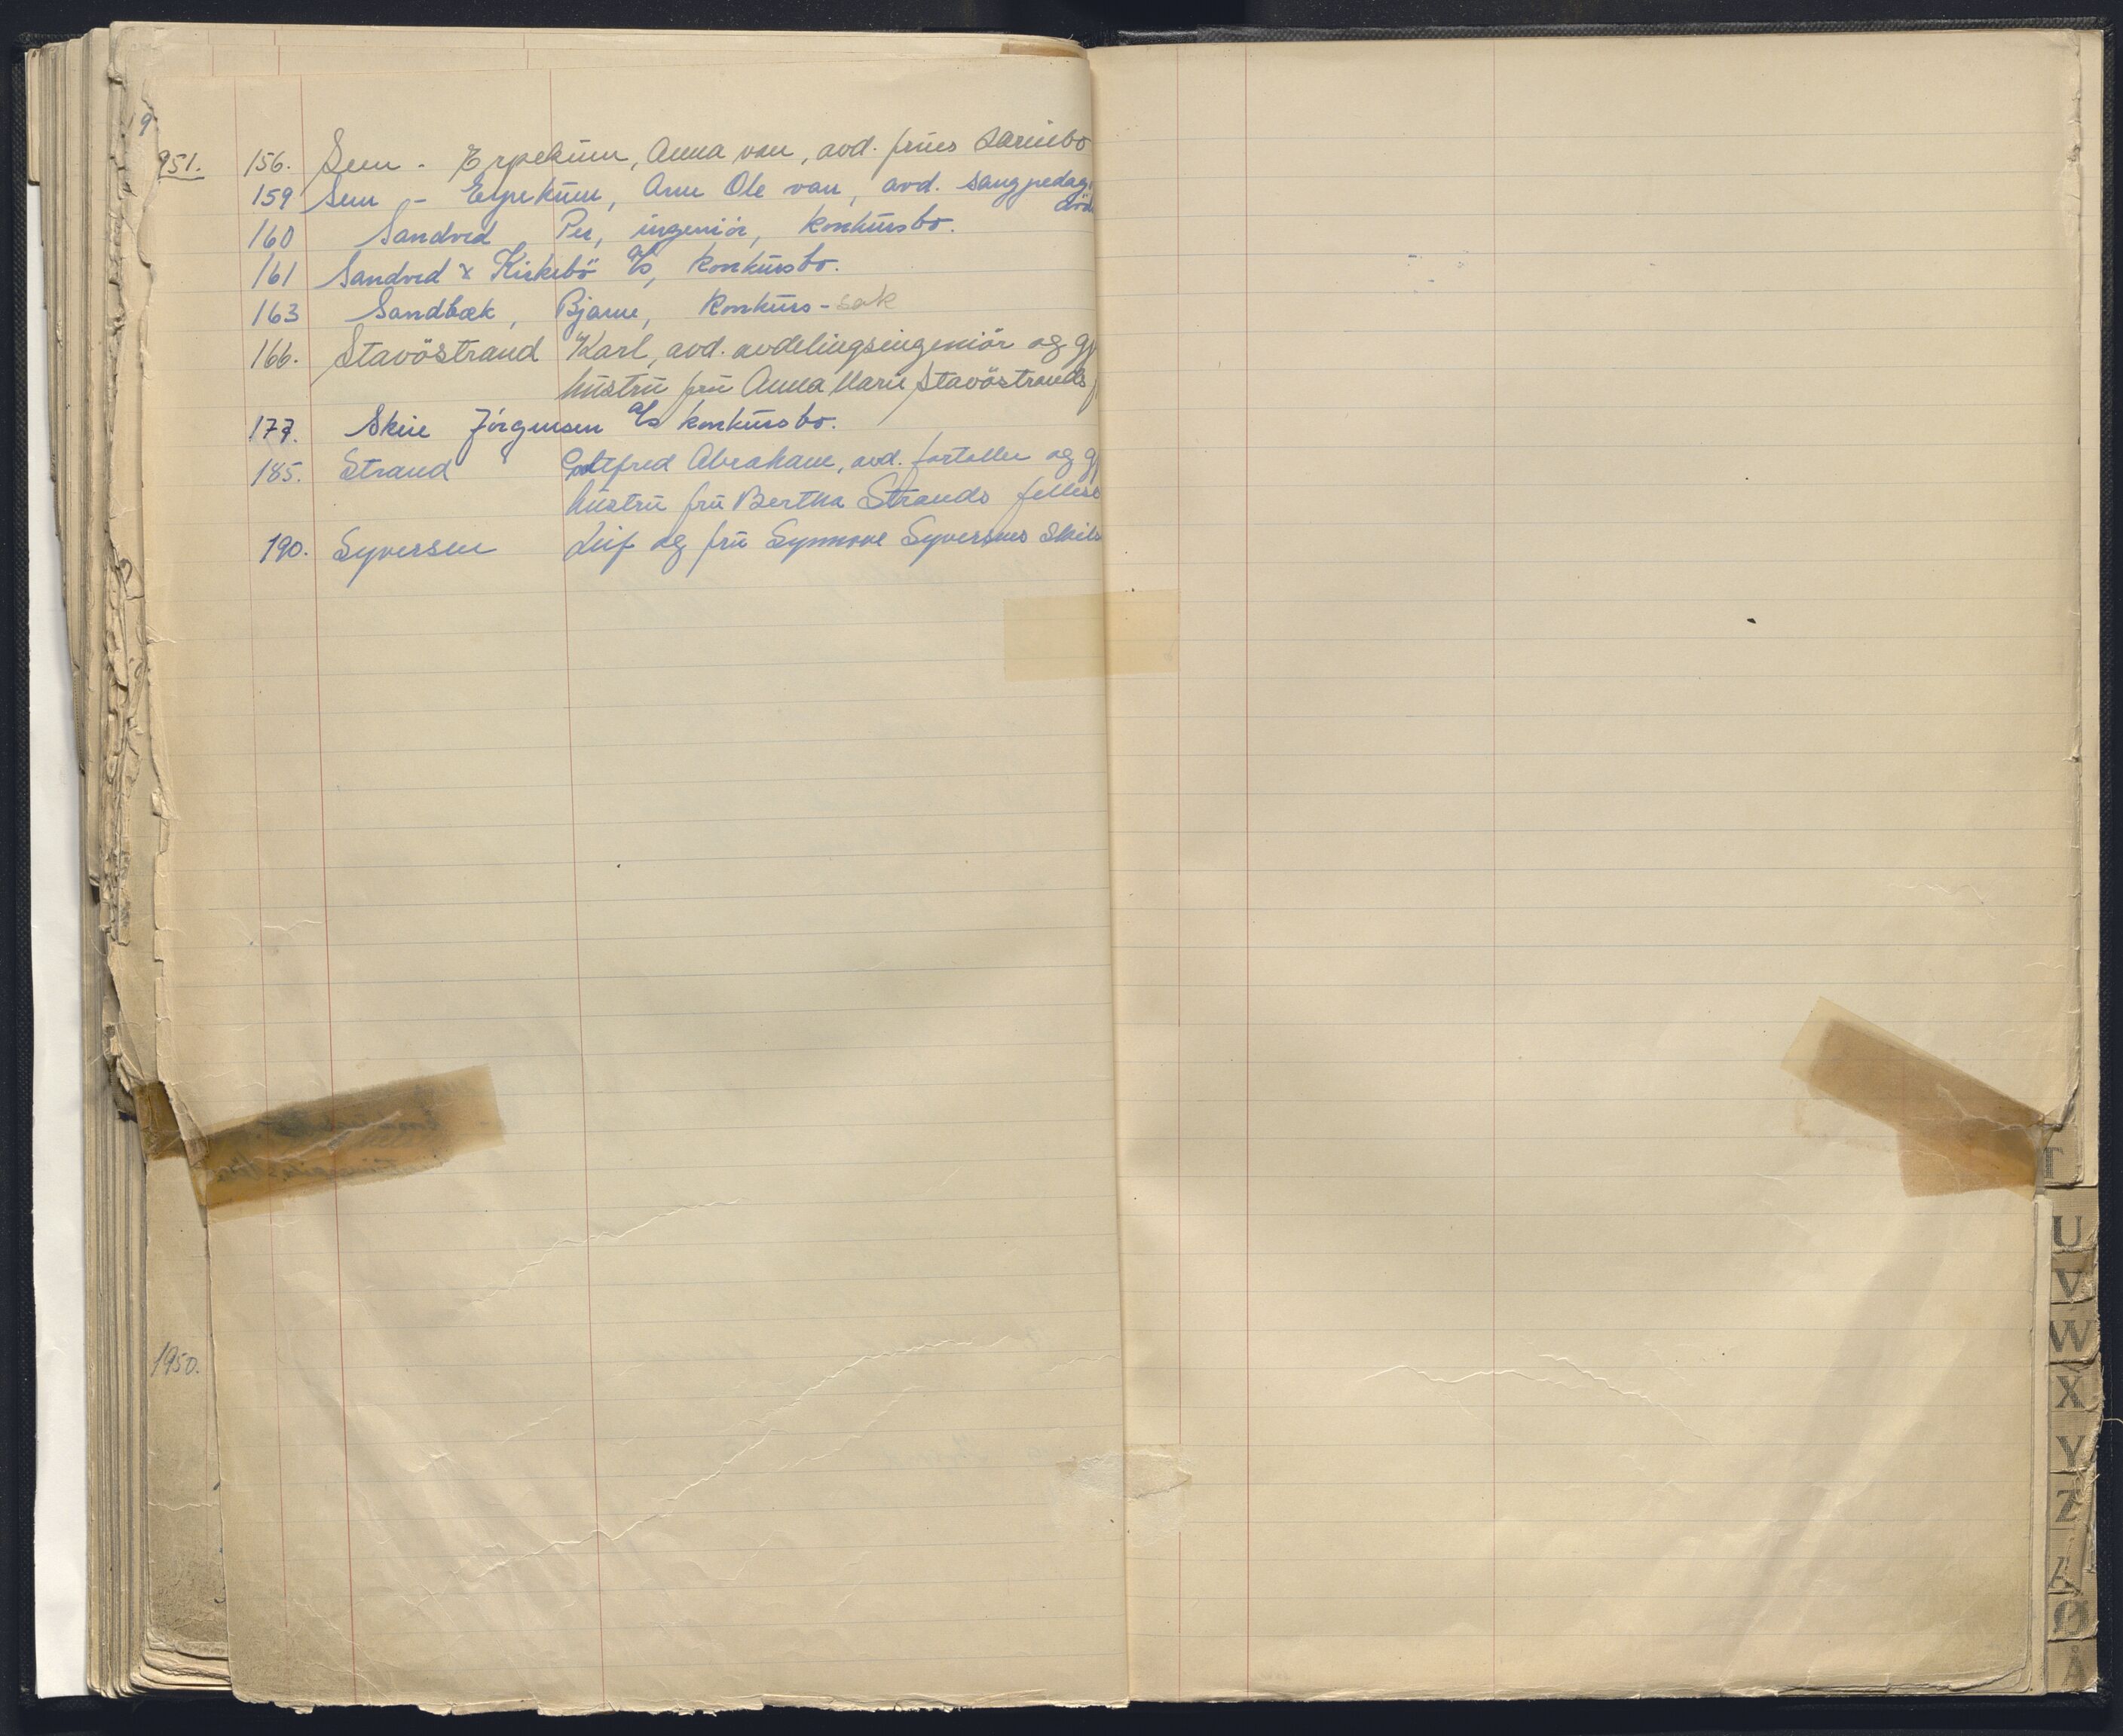 951.
156. Sem - Erpekum, Anna van, avd. frues særubo
159 Sem - Erpekum, Ann Ole van, avd. sangpedag
död
160 Sandved Per, ingeniör, konkursbo.
161 Sandved & Kirkebö A/S, konkursbo.
163 Sandbæk, Bjarne, konkurs-sak
166. Stavöstrand Karl, avd. avdelingsingeniör og gj
hustru fru Anna Marie Stavöstrands
177. Jörgensen A/S konkursbo.
185. Strand Gotfred Abraham, avd. og gj
hustru fru Bertha Strands felles
190. Syversen Leif og fru Synnöve Syversens Skils
1950.
T
U
V
W
X
Y
Z
Æ
Ø
Å